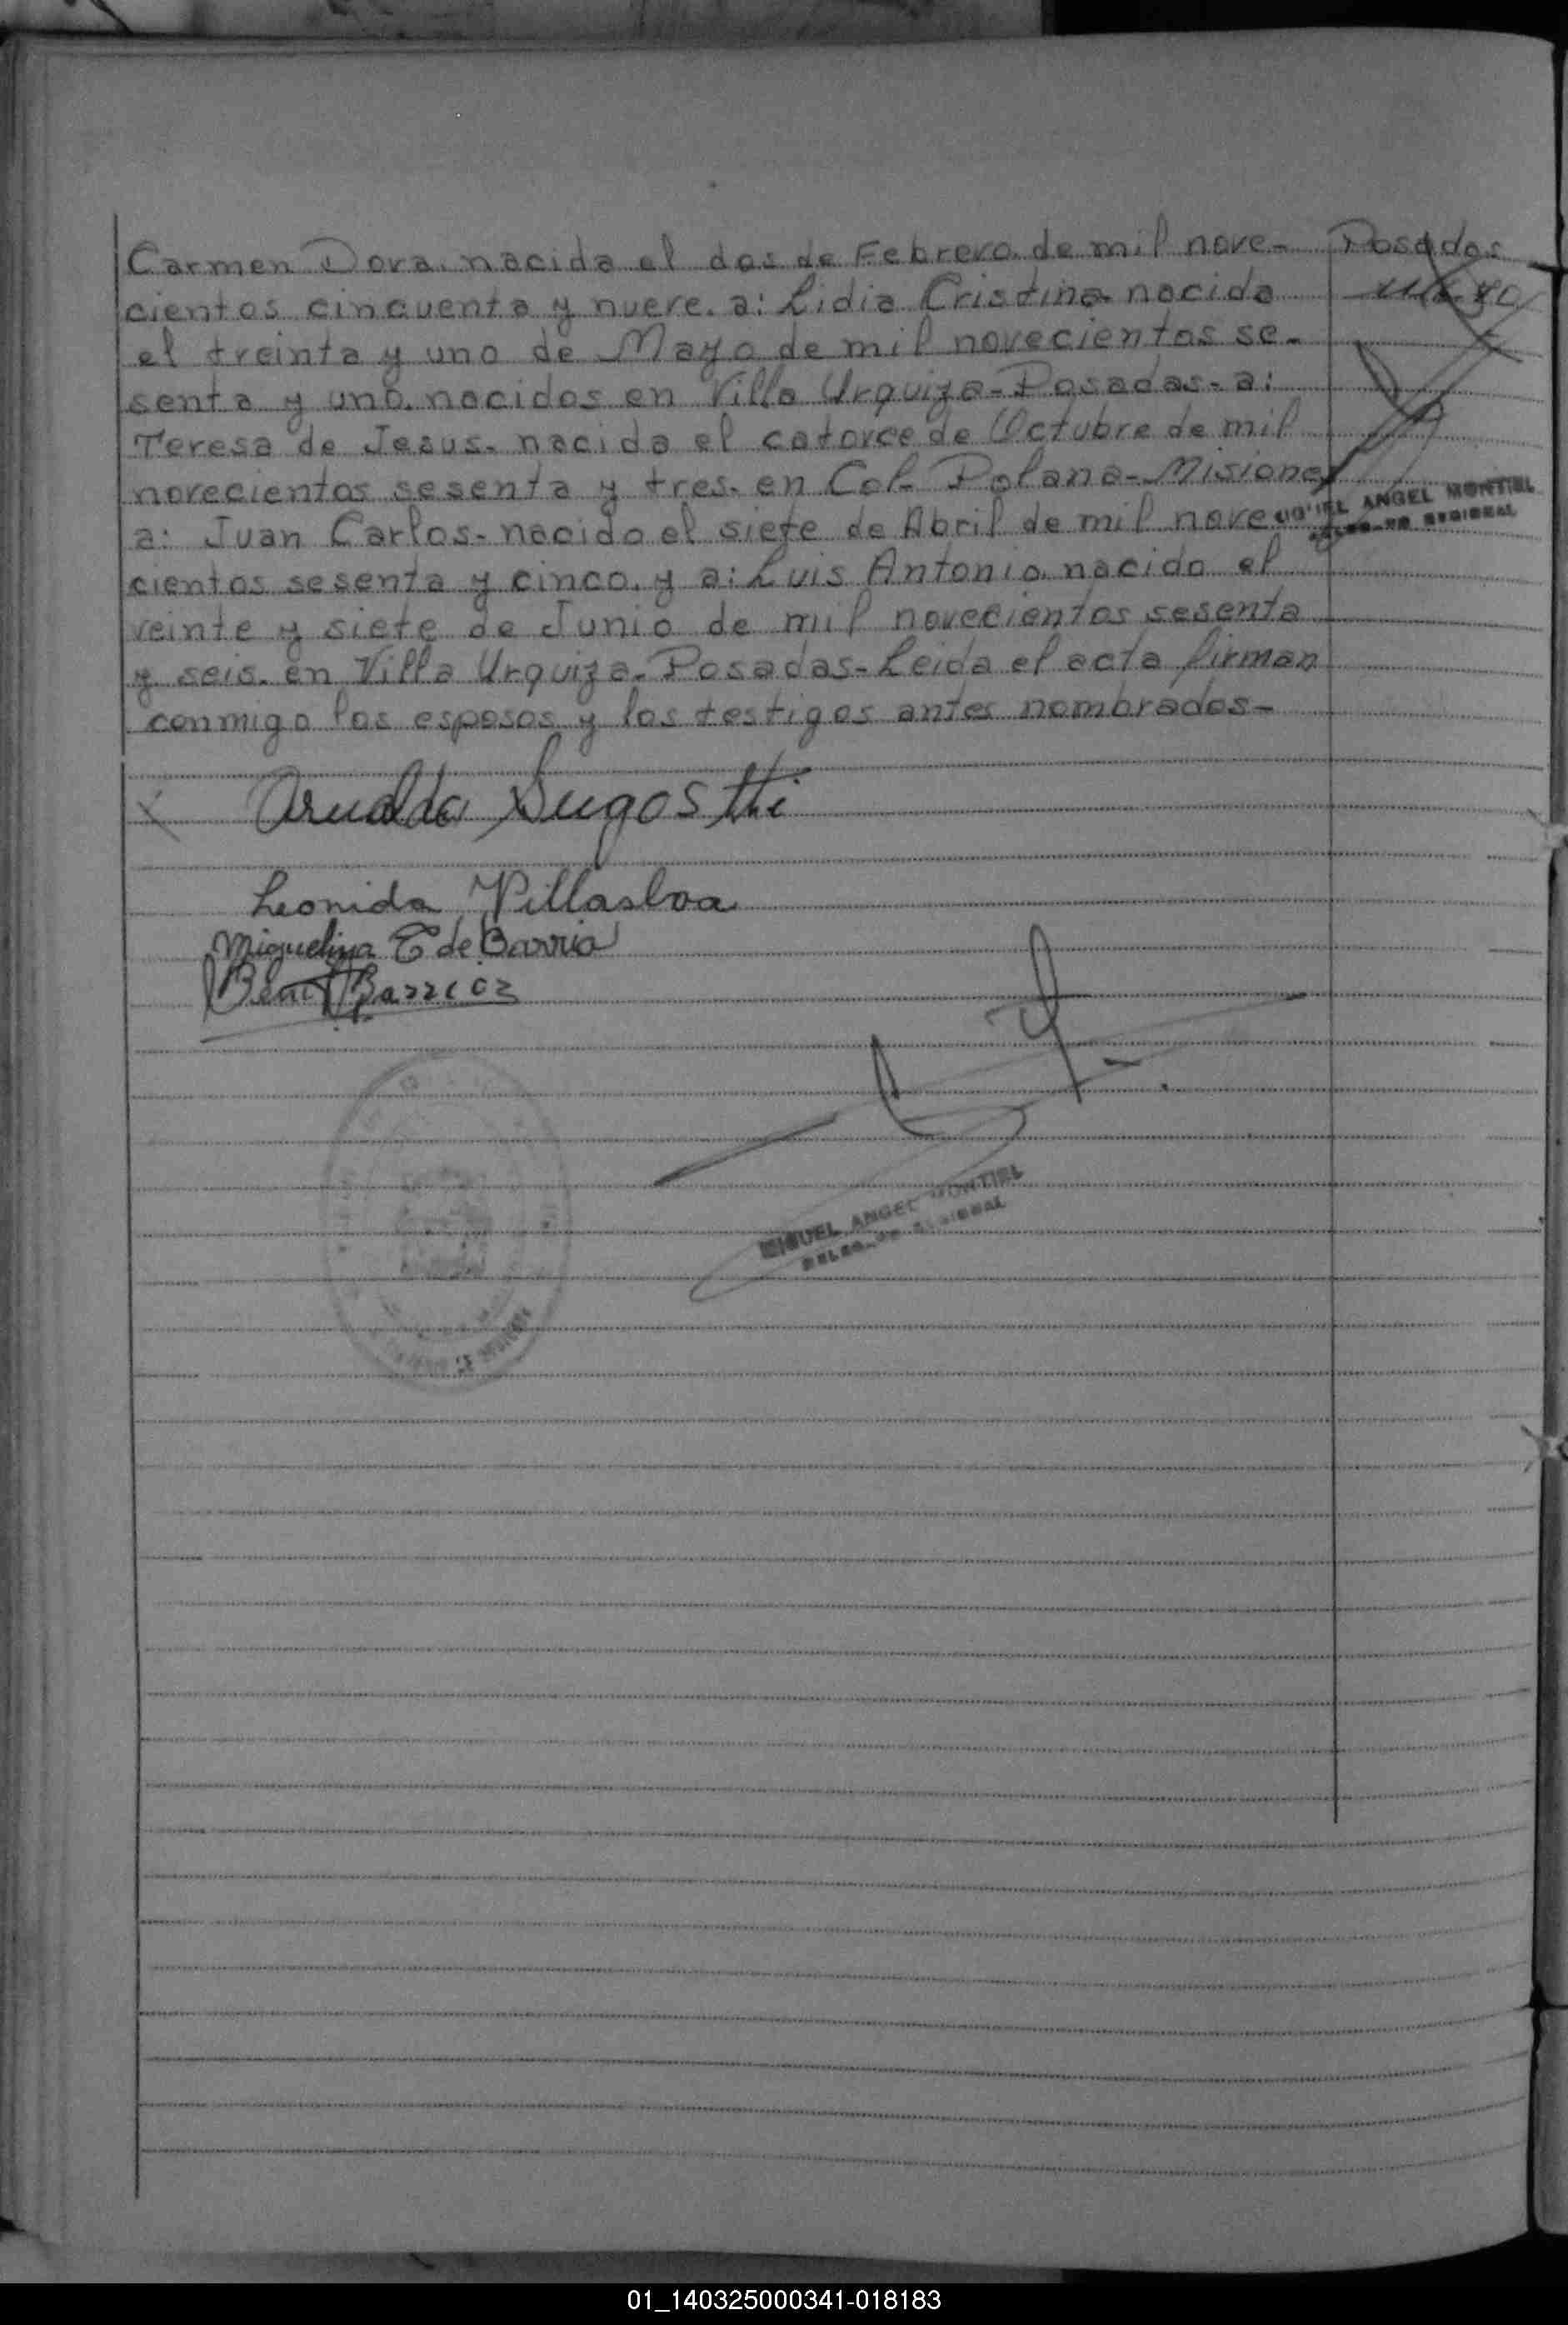 Carmen Dora. nacida el dos de Febrero de mil nove-
cientos cincuenta y nueve. a: Lidia Cristina nacida
el treinta y uno de Mayo de mil novecientos se-
senta y uno. nacidos en Villa Urquiza-Posadas- a:
Teresa de Jesus- nacida el catorce de Octubre de mil
novecientos sesenta y tres- en Col- Polana-Misiones
a: Juan Carlos- nacido el siete de Abril de mil nove
cientos sesenta y cinco. y a: Luis Antonio nacido el
veinte y siete de Junio de mil novecientos sesenta
y seis. en Villa Urquiza-Posadas-Leida el acta firman
conmigo los esposos y los testigos antes nombrados-
Posadas
ANGEL MONTIEL
REGIONAL
Arnaldo Lugosthi
Leonida Villasboa
Miguelina C de Barrio
Barrios
MIGUEL ANGEL MONTIEL
REGIONAL
01_140325000341-018183